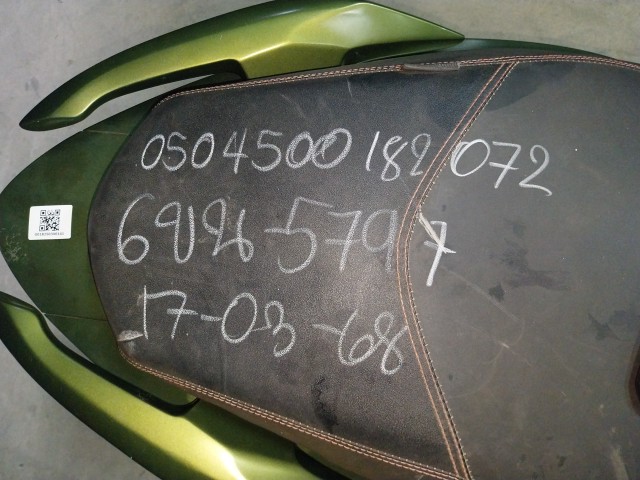 0504500182072
5797
17-03-68